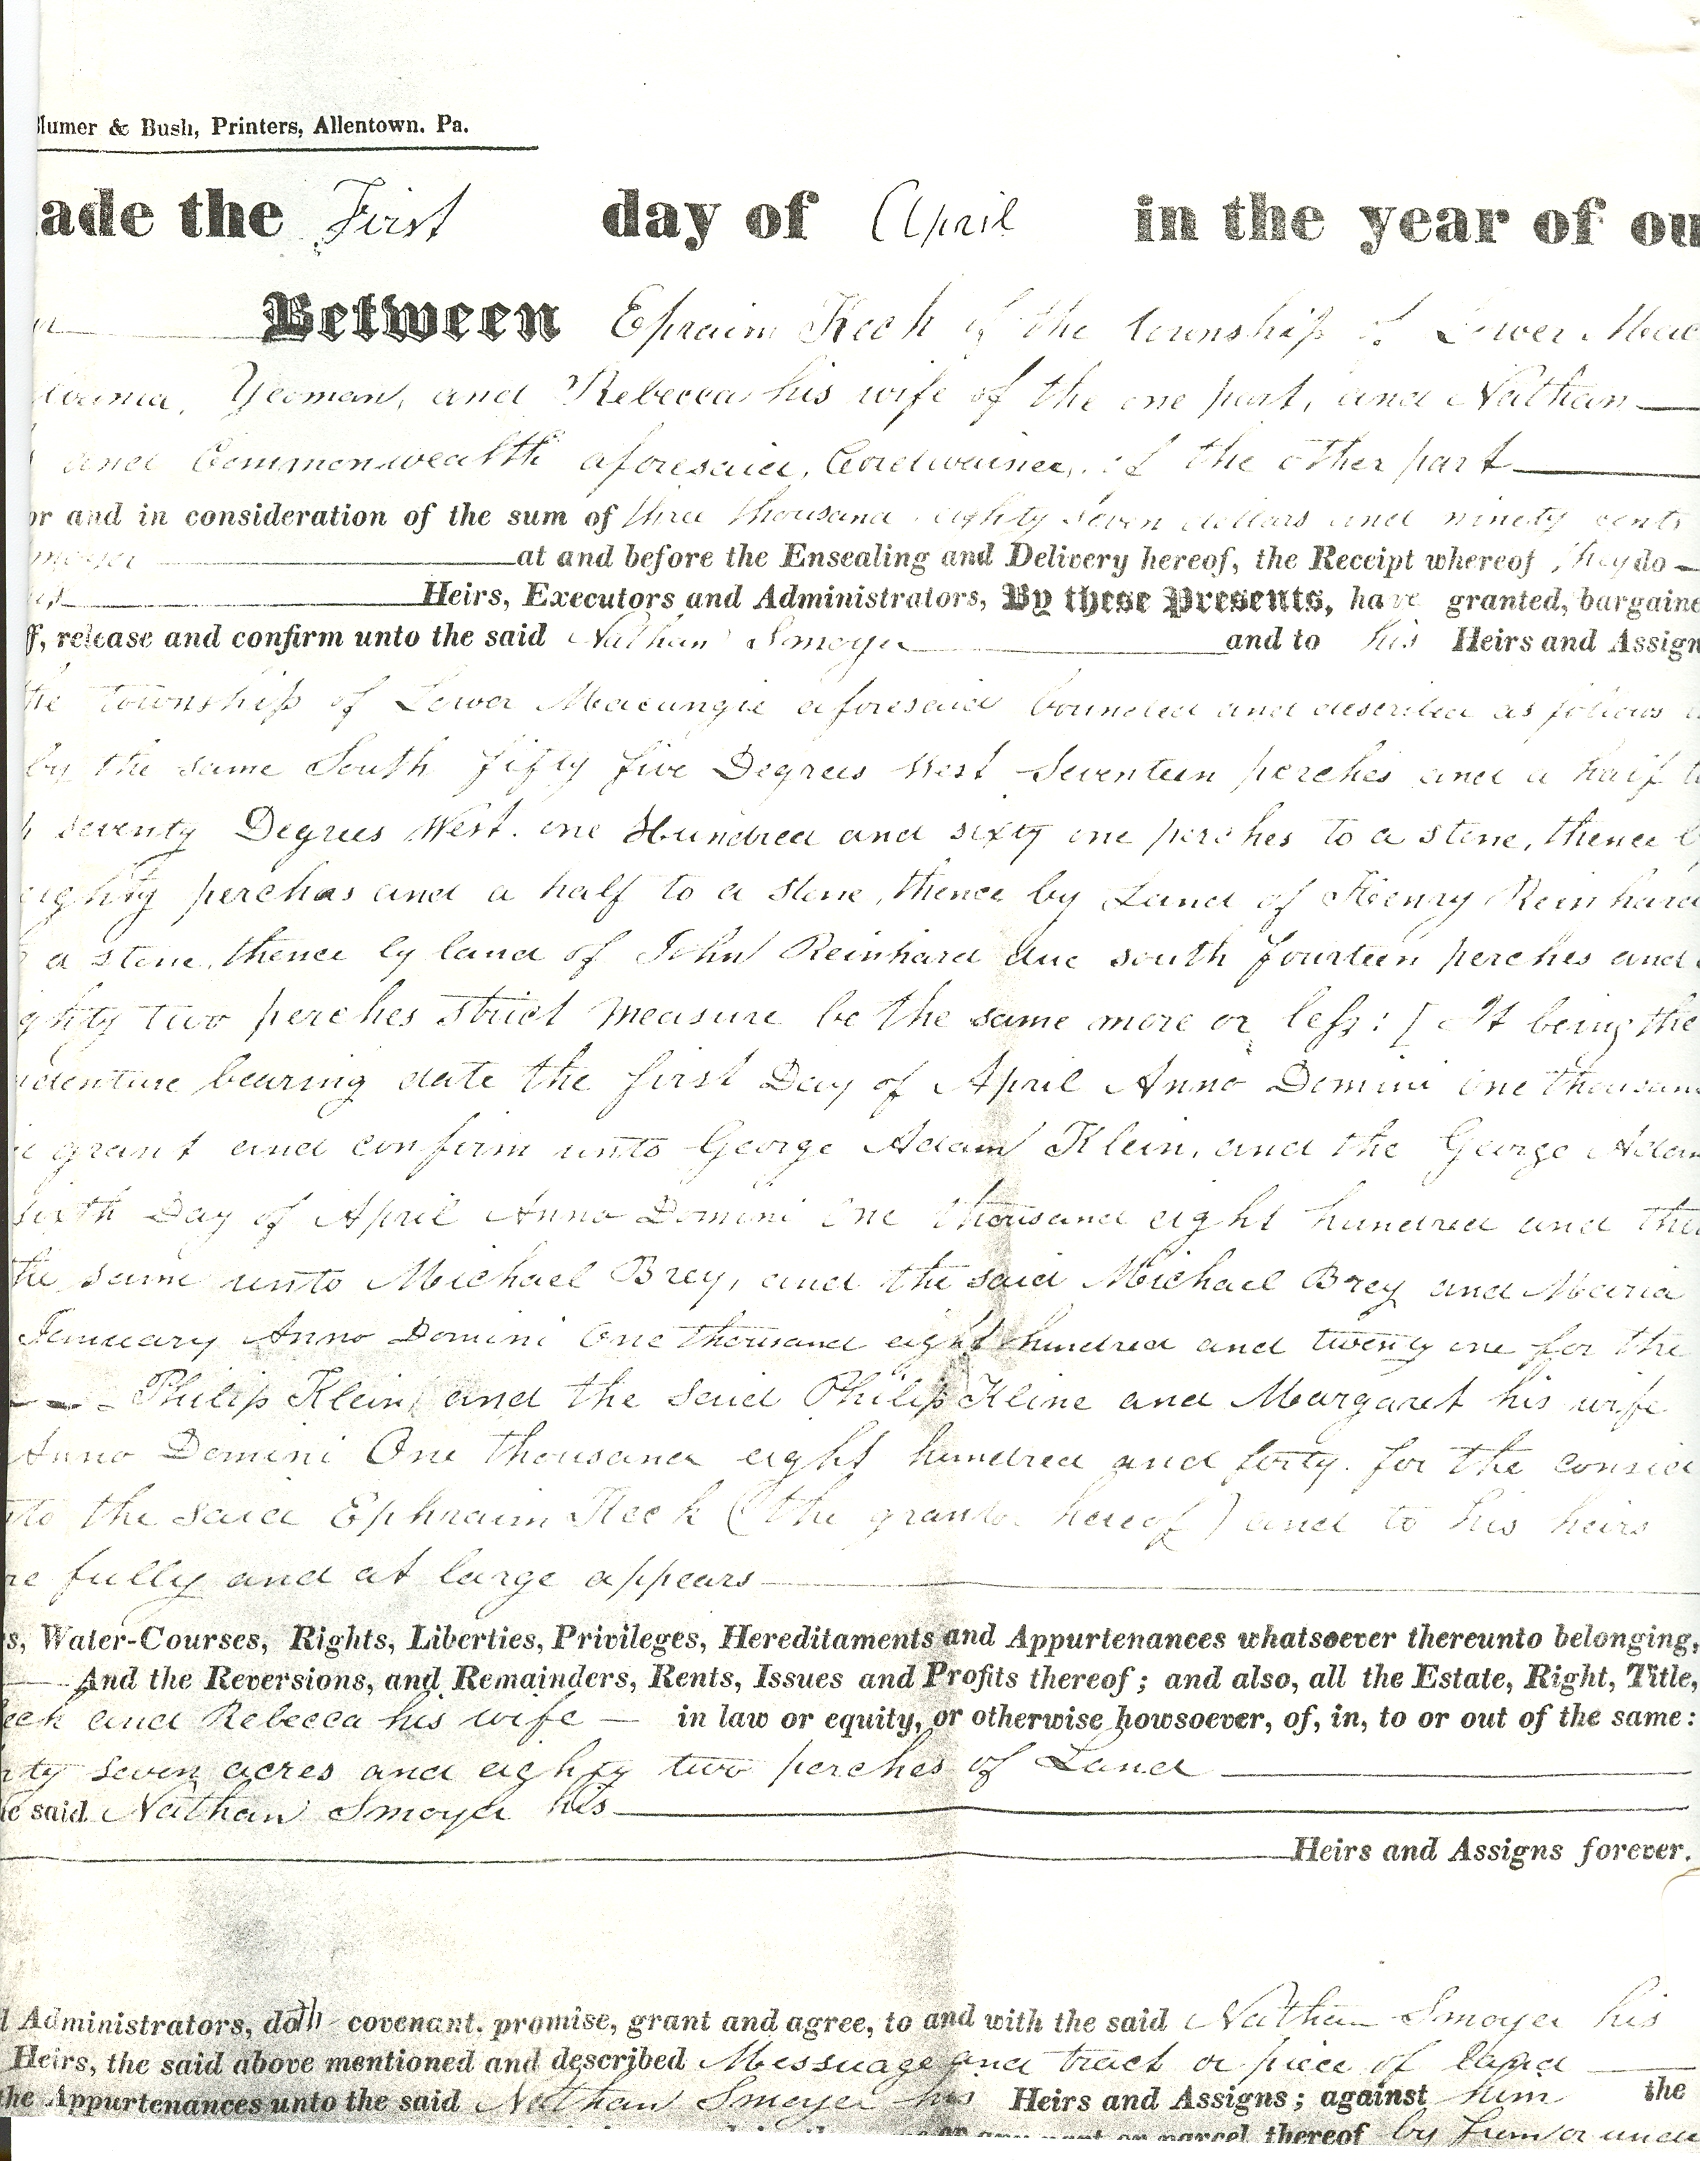 lumer & Bush, Printers, Allentown. Pa.
ade the First day of April in the year of ou
Between Ephraim Keck of the township of Lower Mac
lvania, Yeoman, and Rebecca his wife of the one part, and Nathan
and Commonwealth aforesaid, Cordwainer, of the other part
or and in consideration of the sum of three thousand eighty seven dollars and ninety cents
moyer at and before the Ensealing and Delivery hereof, the Receipt whereof they do
Heirs, Executors and Administrators, By these Presents, have granted, bargaine
ff, release and confirm unto the said Nathan Smoyer and to his Heirs and Assign
the township of Lower Macungie aforesaid bounded and described as follows
by the same South fifty five Degrees West Seventeen perches and a half to
h seventy Degrees West. one Hundred and sixty one perches to a stone, thence b
eighty perches and a half to a stone, thence by Land of Henry Reinhard
a stone, thence by land of John Reinhard due south fourteen perches and
ighty two perches strict measure be the same more or less: [It being the
ndenture bearing date the first Day of April Anno Domini one thousand
grant and confirm unto George Adam Klein, and the George Adam
sixth Day of April Anno Domini One thousand eight hundred and
the same unto Michael Brey, and the said Michael Brey and Maria
January Anno Domini One thousand eight hundred and twenty one for the
Philip Klein, and the said Philip Kline and Margaret his wife
Anno Domini One thousand eight hundred and forty. for the consid
nto the said Ephraim Keck (the grantor hereof) and to his heirs
re fully and at large appears
s, Water-Courses, Rights, Liberties, Privileges, Hereditaments and Appurtenances whatsoever thereunto belonging,
And the Reversions, and Remainders, Rents, Issues and Profits thereof; and also, all the Estate, Right, Title,
eck and Rebecca his wife — in law or equity, or otherwise howsoever, of, in, to or out of the same:
rty seven acres and eighty two perches of Land
he said Nathan Smoyer his
Heirs and Assigns forever.
d Administrators, doth covenant, promise, grant and agree, to and with the said Nathan Smoyer his
Heirs, the said above mentioned and described Messuage and tract or piece of land
the Appurtenances unto the said Nathan Smoyer his Heirs and Assigns; against him the
or any part or parcel thereof by him or unde